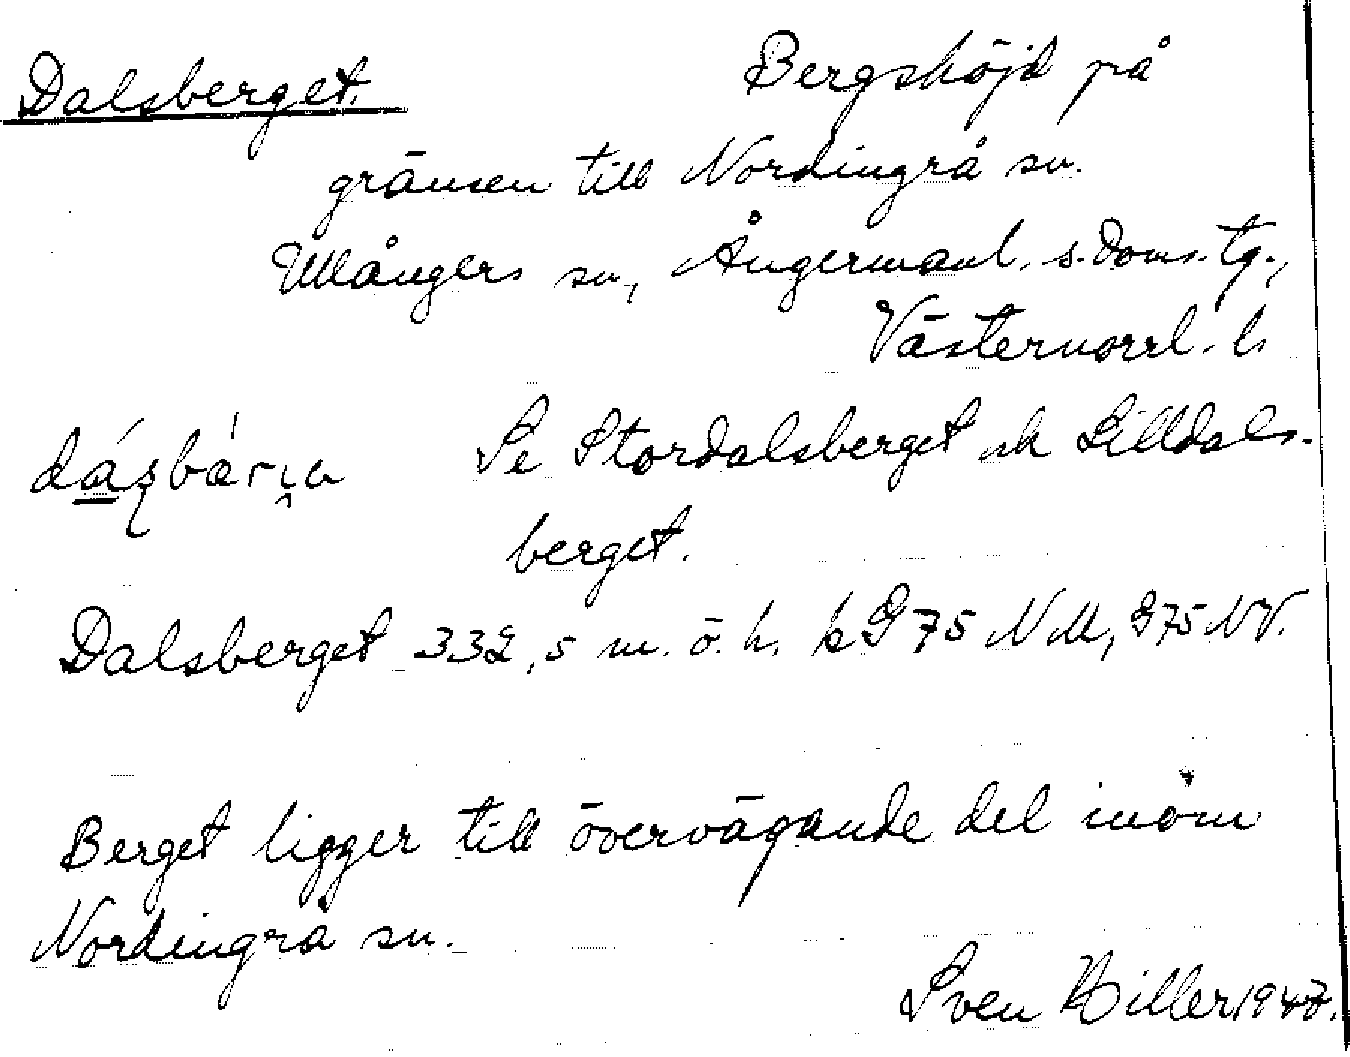 Dalsberget. Bergshöjd på
gränsen till Nordingrå sn.
Ullångers sn, Ångermanl. s. Doms. tg.,
Västernorrl. l.
Se Stordalsberget ok Lilldals-
berget.
Dalsberget 332,5 m. ö. h. k G 75 NM, G75 NV.
Berget ligger till övervägande del inom
Nordingrå sn.
Sven Hiller 1947.